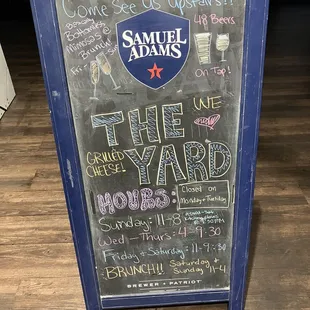 Come See Us Upstairs!!
Bottomless
Mimosas
Brunch
48 Beers
On Tap!
SAMUEL
ADAMS
WE
THE
YARD
GRILLED
CHEESE!
HOURS:
Closed on
Monday + Tuesday
Sunday: 11-8
Wed - Thurs: 4-9:30
Friday + Saturday: 11-9:30
BRUNCH!! Saturday +
Sunday 11-4
BREWER + PATRIOT